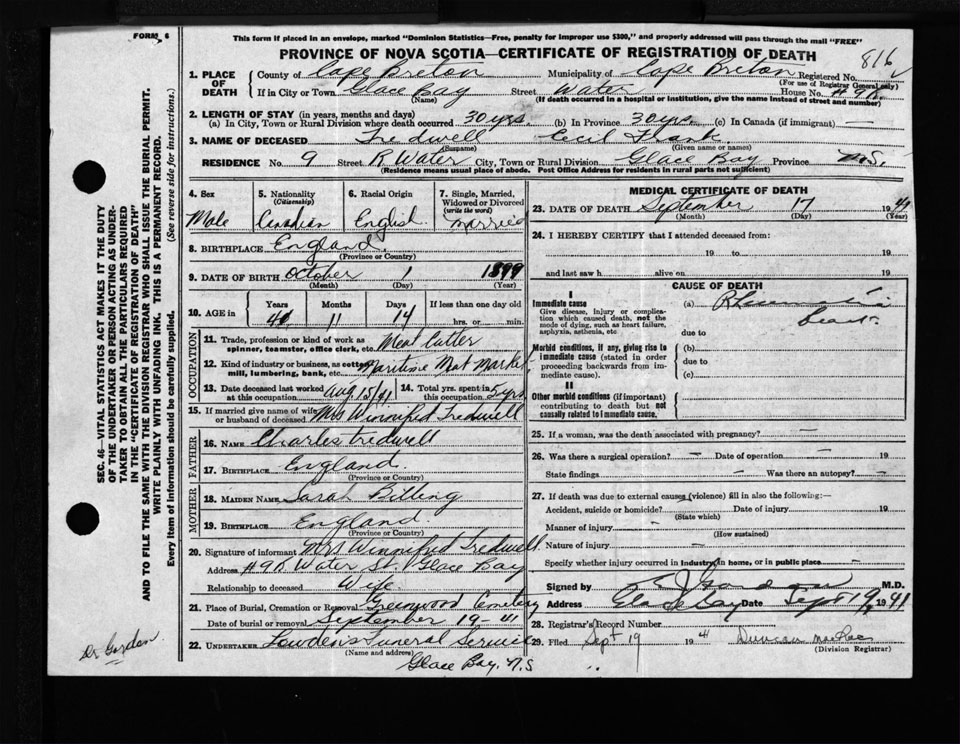 FORM 6
This form if placed in an envelope, marked "Dominion Statistics—Free, penalty for improper use $300," and properly addressed will pass through the mail "FREE"
PROVINCE OF NOVA SCOTIA—CERTIFICATE OF REGISTRATION OF DEATH
816
1. PLACE OF DEATH County of Cape Breton Municipality of Cape Breton Registered No.
(For use of Registrar General only)
If in City or Town Glace Bay Street Water House No. #9R.
(Name) (If death occurred in a hospital or institution, give the name instead of street and number)
2. LENGTH OF STAY (in years, months and days)
(a) In City, Town or Rural Division where death occurred 30 yrs. (b) In Province 30 yrs. (c) In Canada (if immigrant) —
3. NAME OF DECEASED Tredwell Cecil Frank
(Surname) (Given name or names)
RESIDENCE No. 9 Street R. Water City, Town or Rural Division Glace Bay Province N.S.
(Residence means usual place of abode. Post Office Address for residents in rural parts not sufficient)
4. Sex Male
5. Nationality (Citizenship) Canadian
6. Racial Origin English
7. Single, Married, Widowed or Divorced (write the word) Married
8. BIRTHPLACE England.
(Province or Country)
9. DATE OF BIRTH October 1 1899
(Month) (Day) (Year)
10. AGE in Years 41 Months 11 Days 14 If less than one day old
hrs. or min.
OCCUPATION
11. Trade, profession or kind of work as spinner, teamster, office clerk, etc. Meat Cutter
12. Kind of industry or business, as cotton mill, lumbering, bank, etc. Maritime Meat Market.
13. Date deceased last worked at this occupation Aug 15/41 14. Total yrs. spent in this occupation 5 yrs
15. If married give name of wife or husband of deceased Mrs Winnifred Tredwell
FATHER
16. NAME Charles Tredwell
17. BIRTHPLACE England.
(Province or Country)
MOTHER
18. MAIDEN NAME Sarah Billing
19. BIRTHPLACE England.
(Province or Country)
20. Signature of informant Mrs Winnifred Tredwell.
Address #9R Water St. Glace Bay
Relationship to deceased Wife
21. Place of Burial, Cremation or Removal Greenwood Cemetery
Date of burial or removal September 19-41
22. UNDERTAKER Lowden's Funeral Service
(Name and address)
Glace Bay, N.S
MEDICAL CERTIFICATE OF DEATH
23. DATE OF DEATH September 17 1941
(Month) (Day) (Year)
24. I HEREBY CERTIFY that I attended deceased from:
19 to 19
and last saw h alive on 19
CAUSE OF DEATH
I
Immediate cause (a) Rheumatic
Give disease, injury or complication which caused death, not the mode of dying, such as heart failure, asphyxia, asthenia, etc
Heart.
due to
Morbid conditions, if any, giving rise to immediate cause (stated in order proceeding backwards from immediate cause). (b)
due to
(c)
II
Other morbid conditions (if important) contributing to death but not causally related to immediate cause.
25. If a woman, was the death associated with pregnancy? —
26. Was there a surgical operation? — Date of operation — 19
State findings — Was there an autopsy? —
27. If death was due to external causes (violence) fill in also the following:—
Accident, suicide or homicide? Date of injury 19
(State which)
Manner of injury —
(How sustained)
Nature of injury —
Specify whether injury occurred in Industry, in home, or in public place —
Signed by Gordon M.D.
Address Glace Bay Date Sept 19, 1941
28. Registrar's Record Number
29. Filed Sept 19 1941 Duncan MacRae
(Division Registrar)
SEC. 46— VITAL STATISTICS ACT MAKES IT THE DUTY
OF THE UNDERTAKER OR PERSON ACTING AS UNDER-
TAKER TO OBTAIN ALL THE PARTICULARS REQUIRED
IN THE "CERTIFICATE OF REGISTRATION OF DEATH"
AND TO FILE THE SAME WITH THE DIVISION REGISTRAR WHO SHALL ISSUE THE BURIAL PERMIT.
WRITE PLAINLY WITH UNFADING INK. THIS IS A PERMANENT RECORD.
Every item of Information should be carefully supplied. (See reverse side for instructions.)
Dr Gordon.